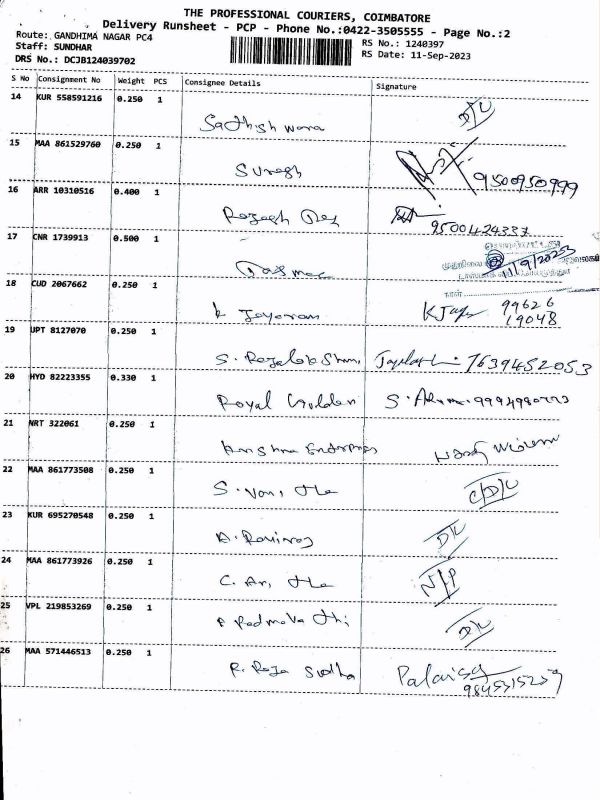 THE PROFESSIONAL COURIERS, COIMBATORE
Delivery Runsheet - PCP - Phone No.:0422-3505555 - Page No.:2
Route: GANDHIMA NAGAR PC4
Staff: SUNDHAR
RS No.: 1240397
DRS No.: DCJB124039702
RS Date: 11-Sep-2023
S No Consignment No Weight PCS Consignee Details Signature
14 KUR 558591216 0.250 1
Sathishwara D/L
15 MAA 861529760 0.250 1
Suresh 9500950999
16 ARR 10310516 0.400 1
Rajesh 9500424337
17 CNR 1739913 0.500 1
Tasmac 11/9/2023
நாள்
18 CUD 2067662 0.250 1
K Jayaram 99626
19048
19 UPT 8127070 0.250 1
S. Rajalakshmi 7639452053
20 HYD 82223355 0.330 1
Royal Golden
21 NRT 322061 0.250 1
Krishna Enterprises
22 MAA 861773508 0.250 1
S. Vanitha
23 KUR 695270548 0.250 1
A. D/L
24 MAA 861773926 0.250 1
C. N/P
25 VPL 219853269 0.250 1
Padmavathi D/L
26 MAA 571446513 0.250 1
R. Raja Sudha